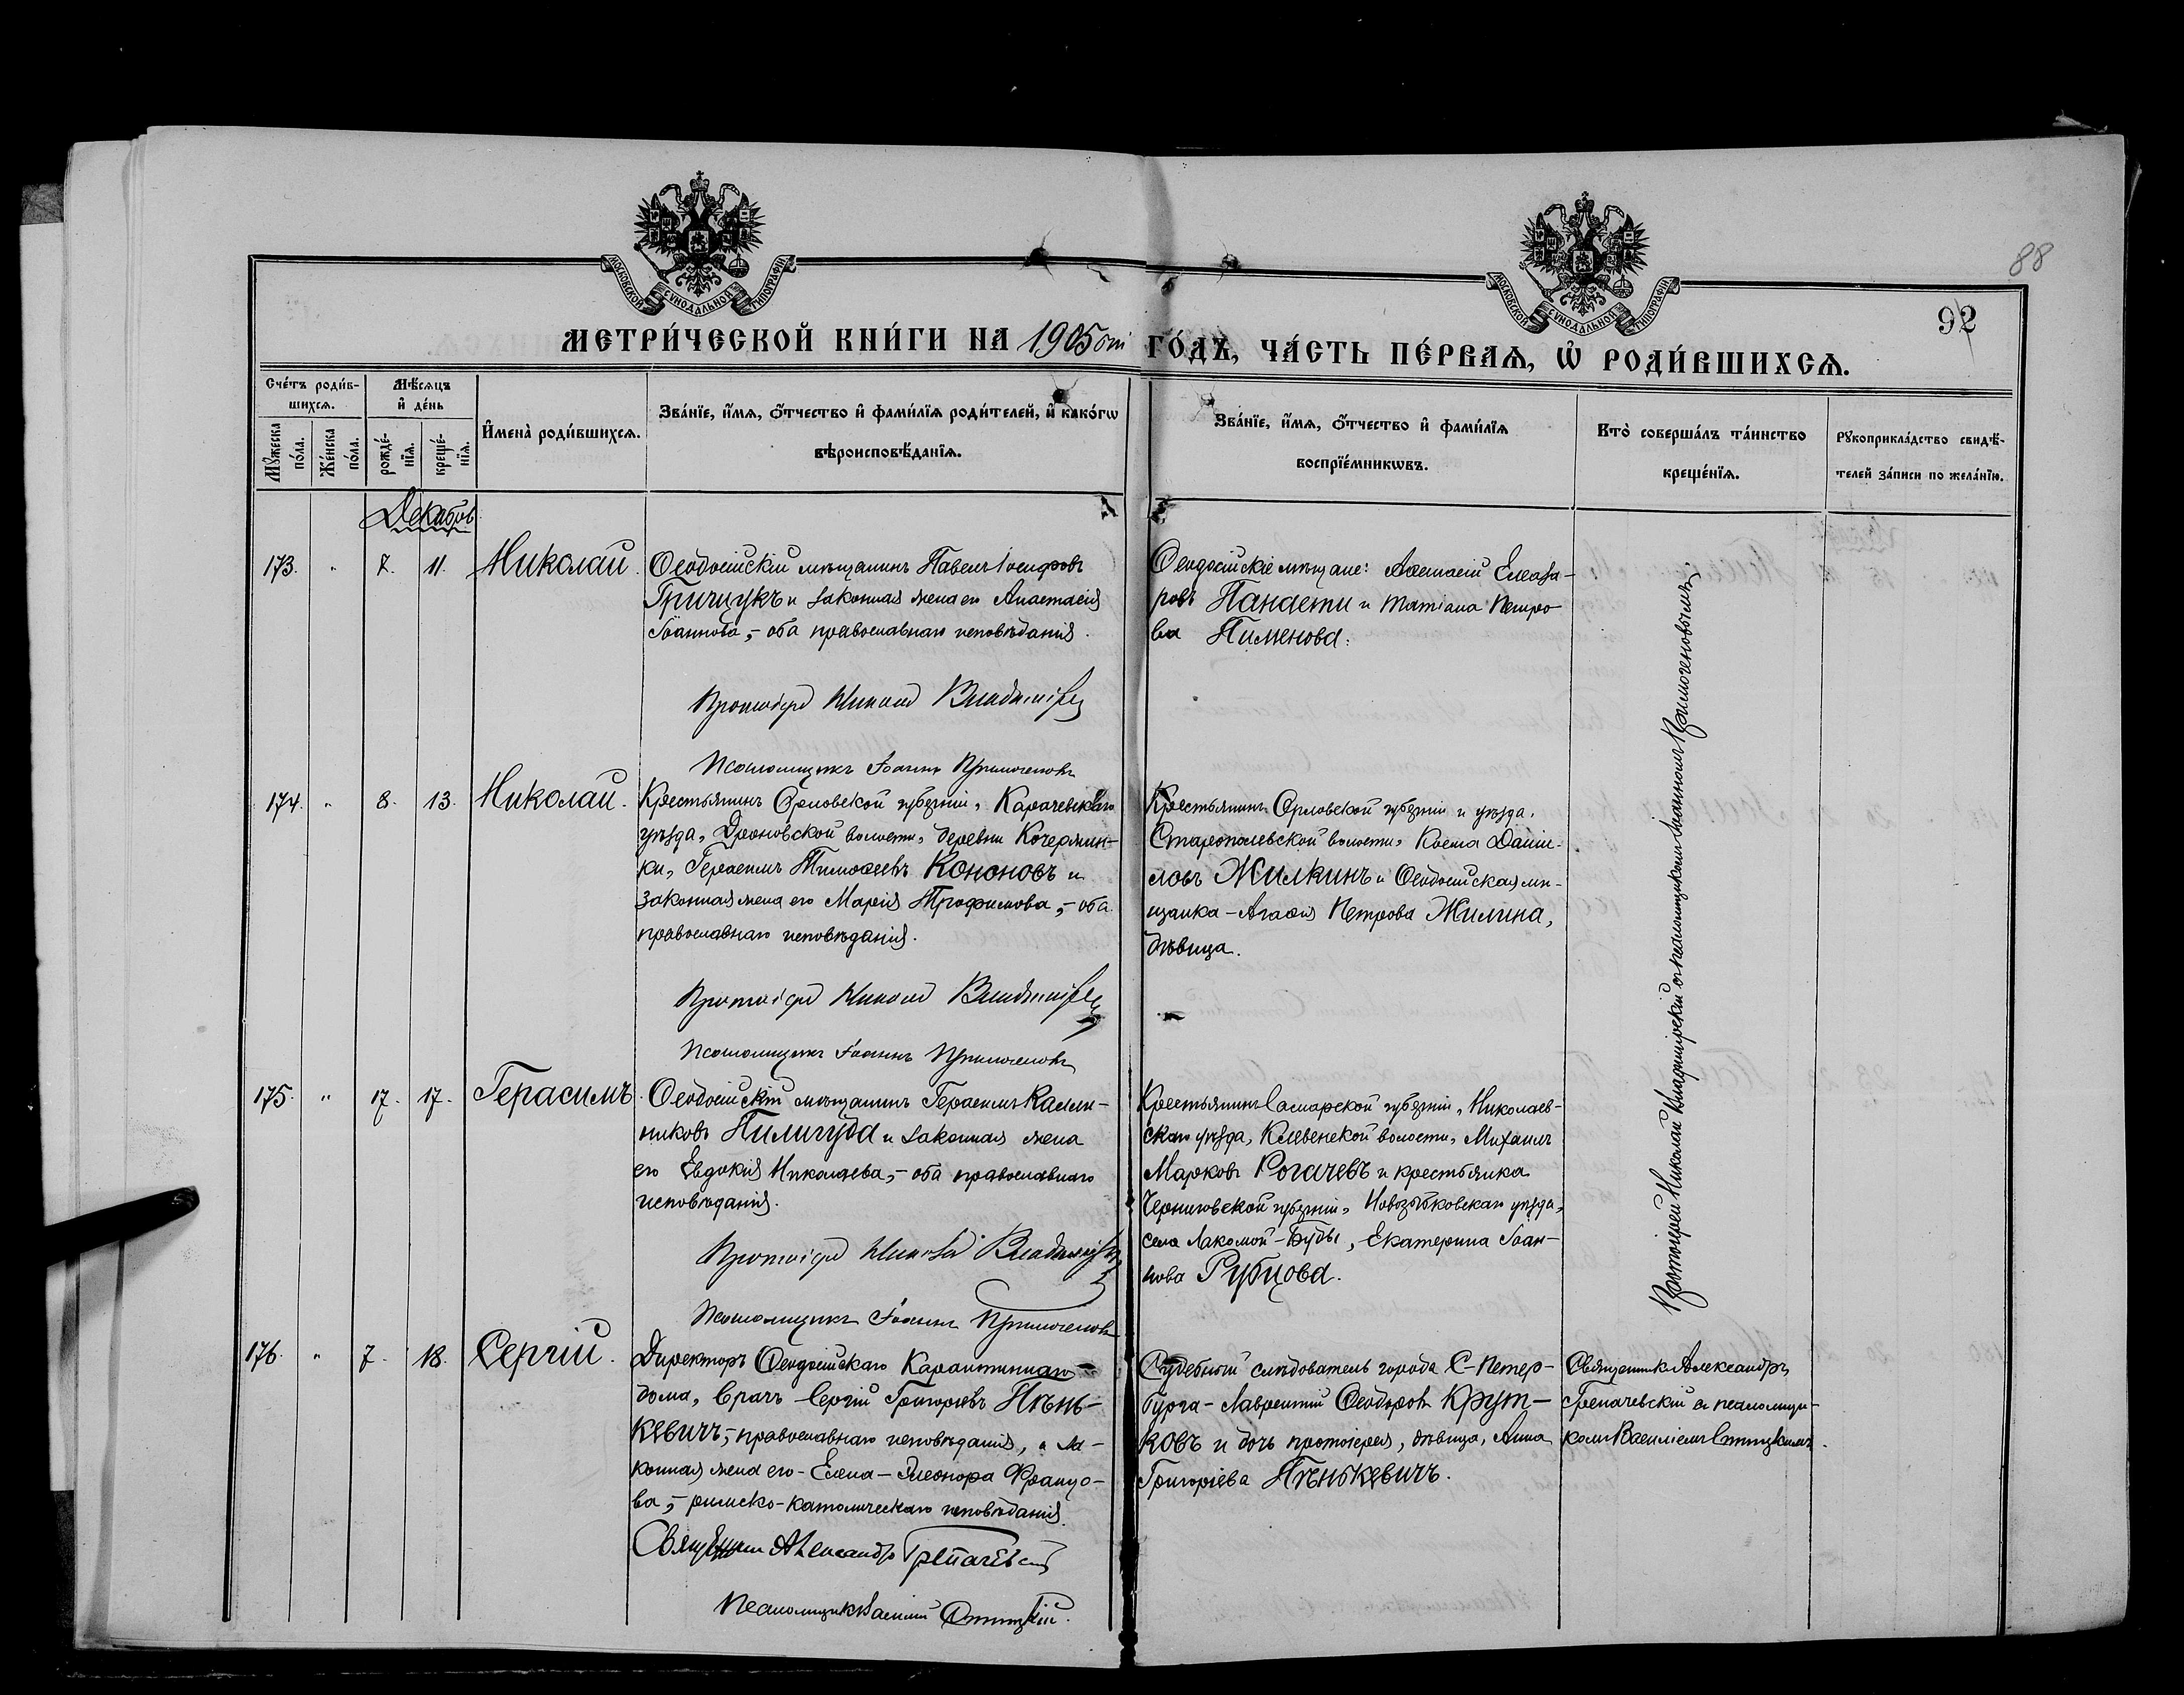 88
92
МОСКОВСКОЙ СѴНОДАЛЬНОЙ ТИПОГРАФІИ
МОСКОВСКОЙ СѴНОДАЛЬНОЙ ТИПОГРАФІИ
МЕТРИ́ЧЕСКОЙ КНИ́ГИ НА 1905 ый ГО́ДЪ, ЧА́СТЬ ПЕ́РВАѦ, Ѡ РОДИ́ВШИХСѦ.
Сче́тъ роди́в-
шихсѧ.
Мꙋ́жеска по́ла.
Же́нска по́ла.
Мѣ́сѧцъ
и҆ де́нь
рожде́-
нїѧ.
креще́-
нїѧ.
И҆мена̀ роди́вшихсѧ.
Зва́нїе, и҆́мѧ, ѻ҆́тчество и҆ фамѝлїѧ роди́телей, и҆ како́гѡ
вѣроисповѣ́данїѧ.
Зва́нїе, и҆́мѧ, ѻ҆́тчество и҆ фами́лїѧ
воспрїе́мникѡвъ.
Кто̀ соверша́лъ та́инство
креще́нїѧ.
Рꙋкоприкла́дство свидѣ́-
телей за́писи по жела́нїю.
Декабрь
173. " 7. 11. Николай.
Ѳеодосійскій мѣщанинъ Павелъ Іосифовъ
Грищукъ и законная жена его Анастасія
Іоаннова, – оба православнаго исповѣданія.
Протоіерей Николай Владимірскій
Псаломщикъ Іоаннъ Примогеновъ
Ѳеодосійскіе мѣщане: Аѳанасій Елеаза-
ровъ Панаети и Татіана Петро-
ва Пименова.
Протоіерей Николай Владимірскій съ псаломщикомъ Іоанномъ Примогеновымъ.
174. " 8. 13. Николай.
Крестьянинъ Орловской губерніи, Карачевскаго
уѣзда, Дроновской волости, деревни Кочержин-
ки, Герасимъ Тимоѳеевъ Кононовъ и
законная жена его Марія Трофимова, – оба
православнаго исповѣданія.
Протоіерей Николай Владимірскій
Псаломщикъ Іоаннъ Примогеновъ
Крестьянинъ Орловской губерніи и уѣзда,
Старопольевской волости, Косма Дани-
ловъ Жилкинъ и Ѳеодосійская мѣ-
щанка – Агаѳія Петрова Жилина,
дѣвица.
175. " 17. 17. Герасимъ.
Ѳеодосійскій мѣщанинъ Герасимъ Каллин-
никовъ Пилигуда и законная жена
его Евдокія Николаева, – оба православнаго
исповѣданія.
Протоіерей Николай Владимірскій
Псаломщикъ Іоаннъ Примогеновъ
Крестьянинъ Самарской губерніи, Николаев-
скаго уѣзда, Клевенской волости, Михаилъ
Марковъ Рогачевъ и крестьянка
Черниговской губерніи, Новозыбковскаго уѣзда,
села Лакомой-Буды, Екатерина Іоан-
нова Рубцова.
176. " 7. 18. Сергій.
Директоръ Ѳеодосійскаго Карантиннаго
дома, врачъ Сергій Григорьевъ Пѣнь-
кевичъ, – православнаго исповѣданія, и за-
конная жена его – Елена – Элеонора Францо-
ва, – римско-католическаго исповѣданія.
Священникъ Александръ Грепачевскій
Псаломщикъ Василій
Судебный слѣдователь города С-Петер-
бурга – Лаврентій Ѳеодоровъ Крут-
ковъ и дочь протоіерея, дѣвица, Анна
Григоріева Пѣнькевичъ.
Священникъ Александръ
Грепачевскій съ псаломщи-
комъ Василіемъ